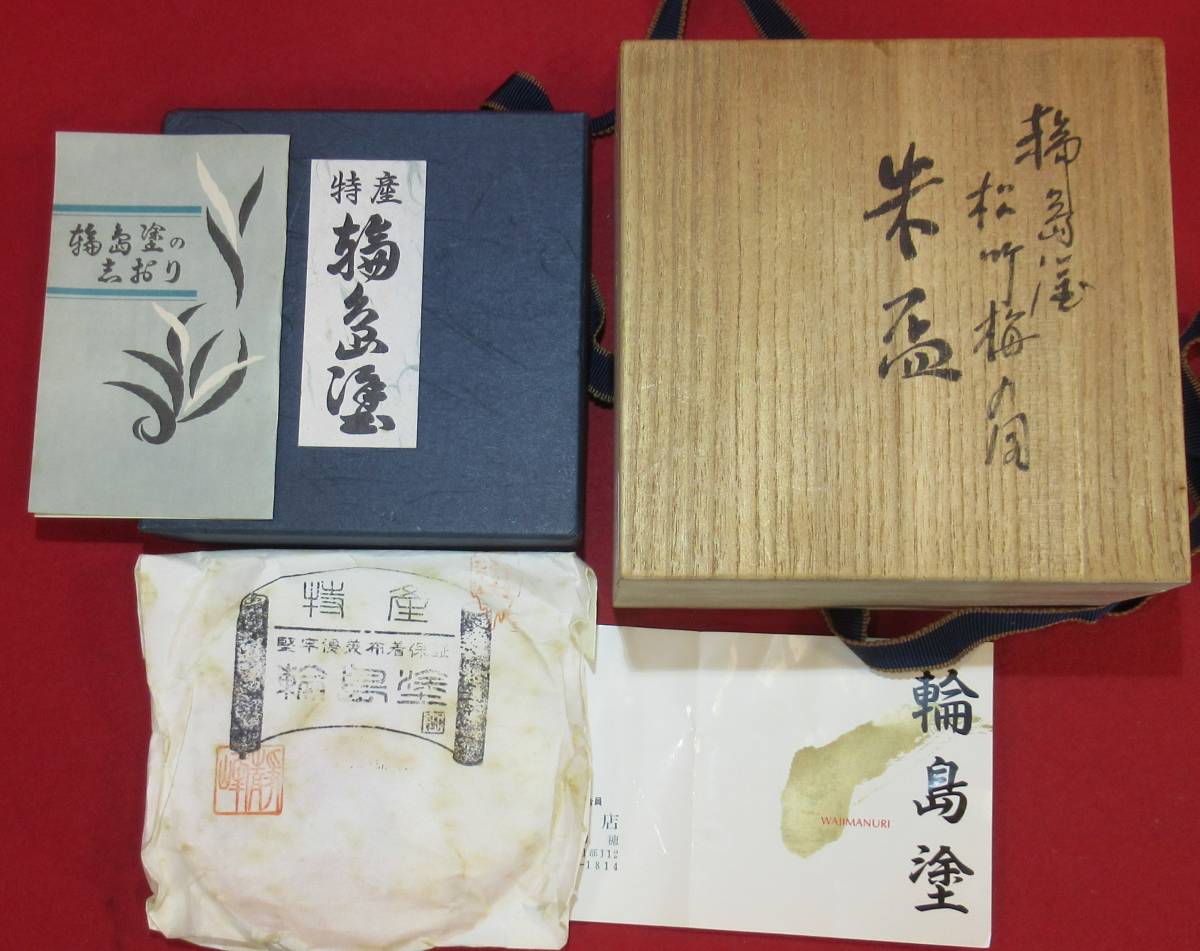 輪島塗の
志おり
特産
輪島塗
輪島塗
松竹梅の図
朱盃
特産
堅牢優美布着保証
輪島塗
輪島塗
WAJIMANURI
合員
店
穂
部112
-1814